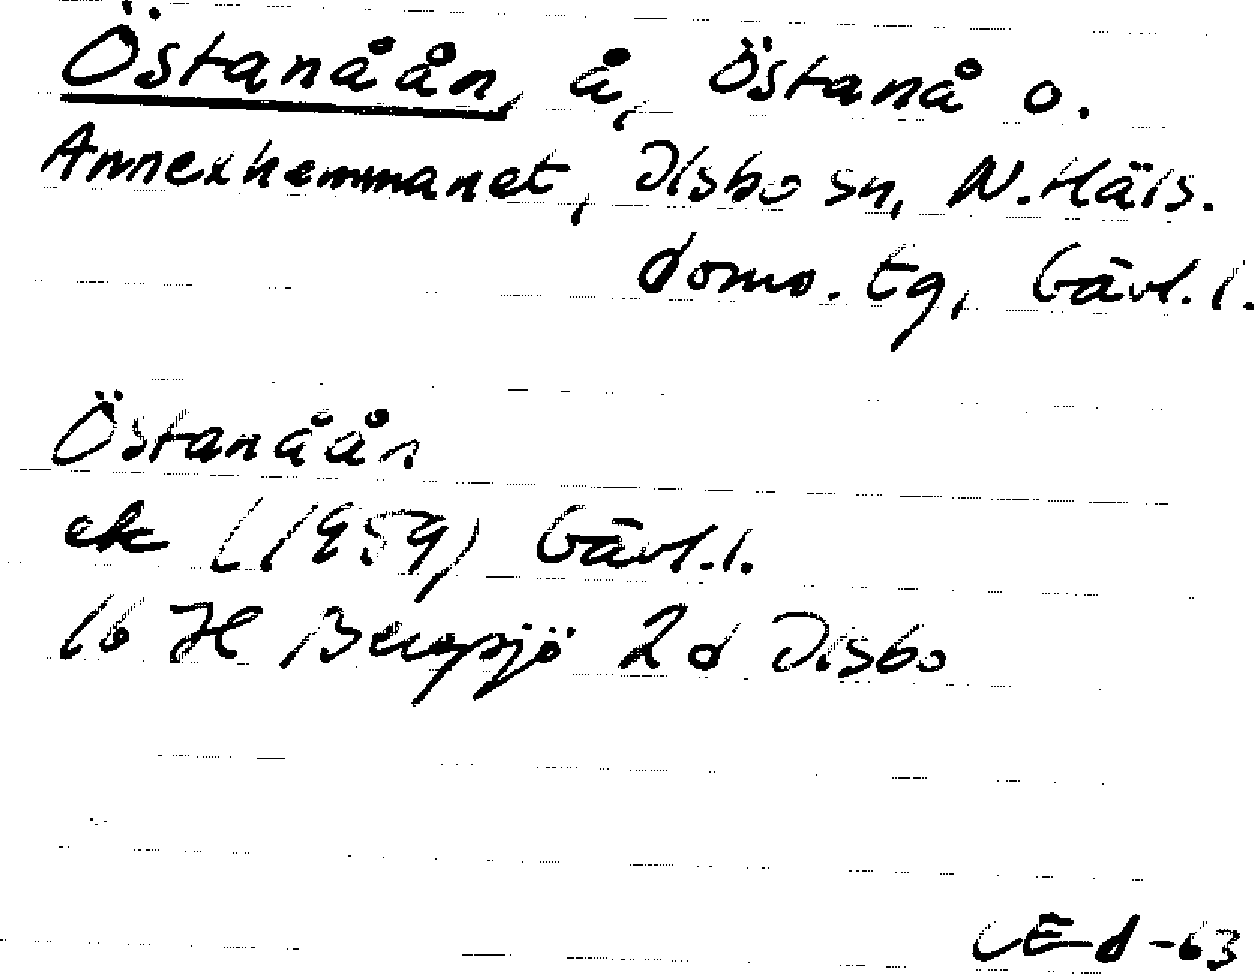 Östanåån, å, Östanå o.
Annexhemmanet, Ilsbo sn, N.Häls.
doms. tg, Gävl.l.
Östanåån
ek (1959) Gävl.l.
16 H Bergsjö 2d Ilsbo
CEd-63